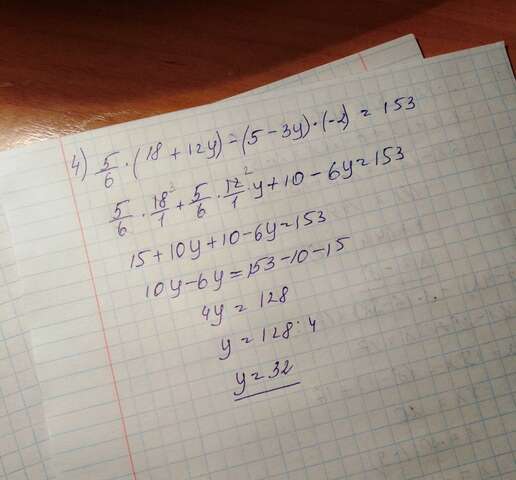 4) 5/6 · (18 + 12y) - (5 - 3y) · (-2) = 153
5/6 · 18³/1 + 5/6 · 12²/1 · y + 10 - 6y = 153
15 + 10y + 10 - 6y = 153
10y - 6y = 153 - 10 - 15
4y = 128
y = 128 : 4
y = 32